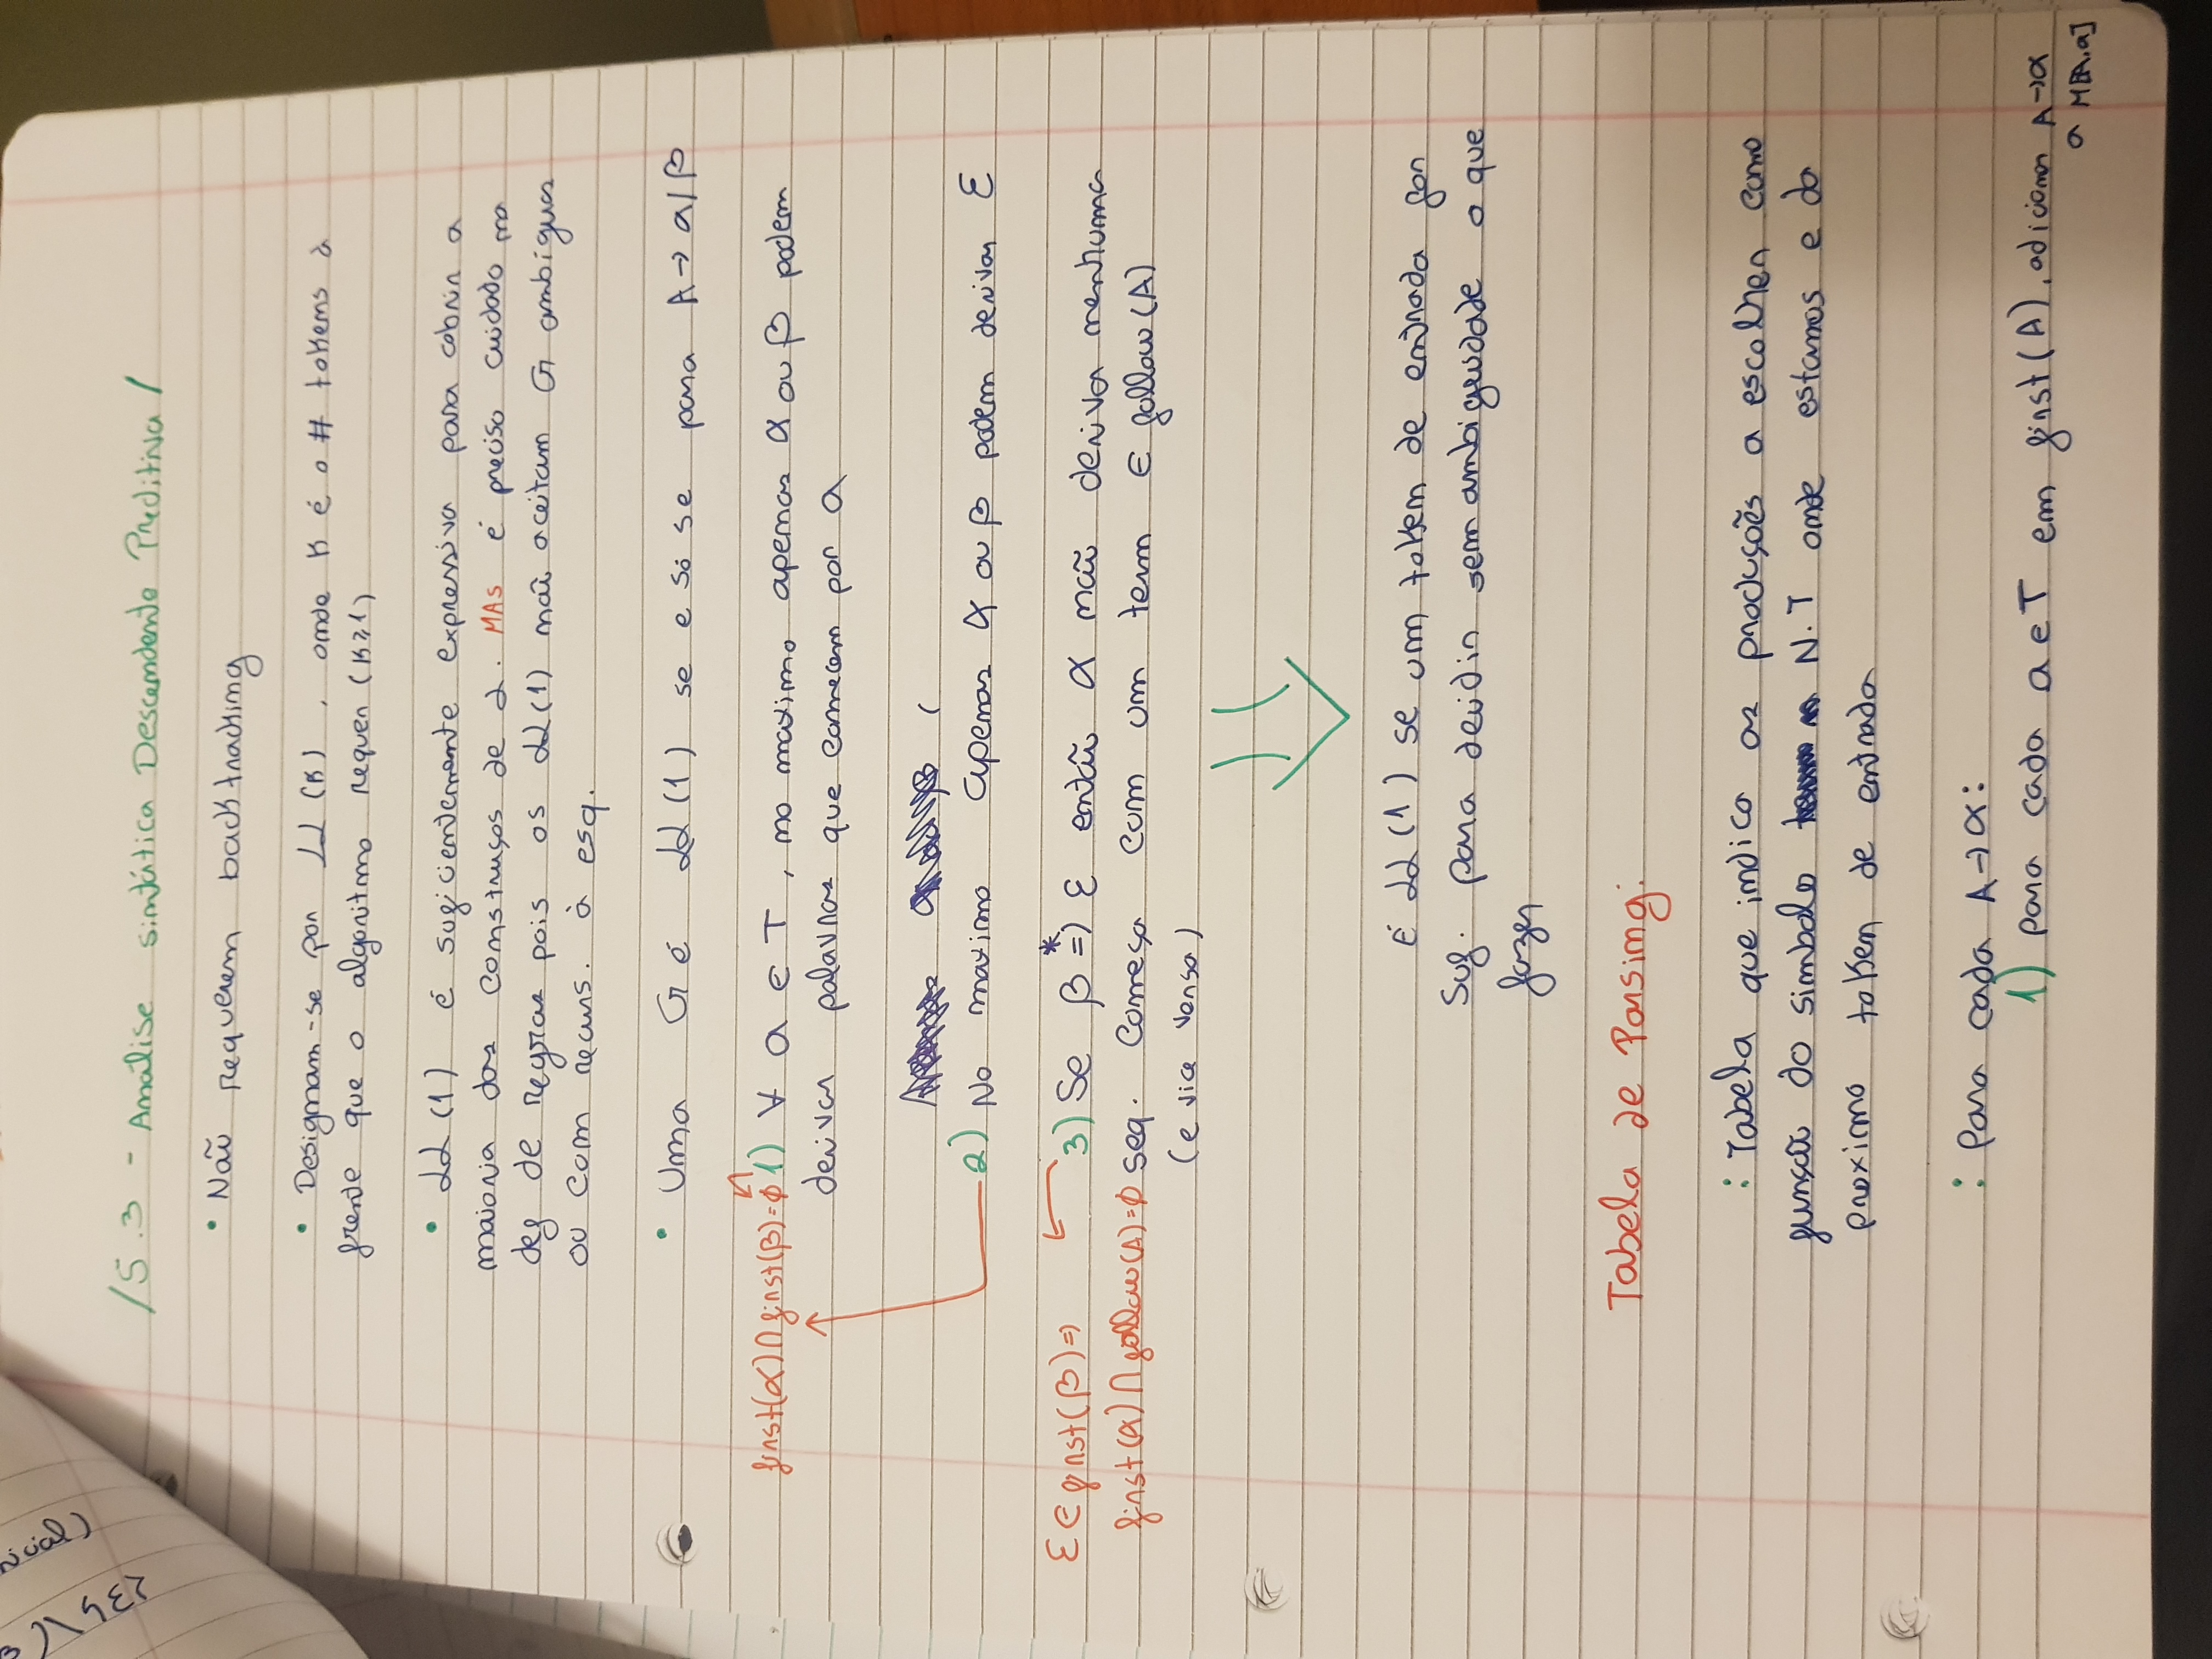 /5.3 - Análise sintática Descendente Preditiva/
• Não requerem backtracking
• Designam-se por LL(K), onde K é o # tokens à
frente que o algoritmo requer (K≥1)
• LL(1) é suficientemente expressiva para cobrir a
maioria das construços de L. MAS é preciso cuidado na
def de regras pois os LL(1) não aceitam G ambíguas
ou com recurs. à esq.
• Uma G é LL(1) se e só se para A → α/β
first(α)∩first(β)=∅ 1) ∀ a ∈ T, no maximo apenas α ou β podem
derivar palavras que comecem por a
2) No maximo apenas α ou β podem derivar ε
ε ∈ first(β)=> 3) Se β *=> ε então α não deriva nenhuma
first(α)∩follow(A)=∅ seq. começa com um term ∈ follow(A)
(e vice versa)
É LL(1) se um token de entrada for
suf. para decidir sem ambiguidade o que
fazer
Tabela de Parsing:
: Tabela que indica as produções a escolher como
função do simbolo N.T onde estamos e do
proximo token de entrada
: para cada A→α:
1) para cada a ∈ T em first(A), adicionar A→α
a M[A,a]